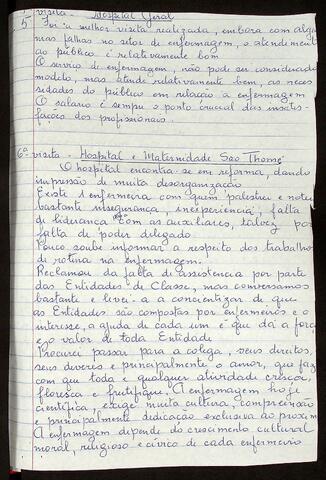 5ª visita - Hospital Geral
Foi a melhor visita realizada, embora com algu
mas falhas no setor de enfermagem, o atendimento
ao público é relativamente bom
O serviço de enfermagem, não pode ser considerado
modelo, mas atende relativamente bem, as neces
sidades do público em relação a enfermagem
O salário é sempre o ponto crucial das insatis-
fações dos profissionais.
6ª visita - Hospital e Maternidade São Thomé
O hospital encontra-se em reforma, dando
impressão de muita desorganização
Existe 1 enfermeira com quem palestrei e notei
bastante insegurança, inexperiência, falta
de liderança com as auxiliares, talvez por
falta de poder delegado
Pouco soube informar a respeito dos trabalhos
de rotina na enfermagem.
Reclamou da falta de assistencia por parte
das Entidades de Classe, mas conversamos
bastante e levei-a a concientizar de que
as Entidades são compostas por enfermeiros e o
interesse, a ajuda de cada um é que dá a força
e o valor de toda Entidade
Procurei passar para a colega, seus direitos,
seus deveres e principalmente o amor, que faz
com que toda e qualquer atividade cresça,
floresça e frutifique. A enfermagem hoje
científica, exige muita cultura, compreenção
e principalmente dedicação exclusiva ao proximo
A enfermagem depende do crescimento cultural
moral, religioso e cívico de cada enfermeiro